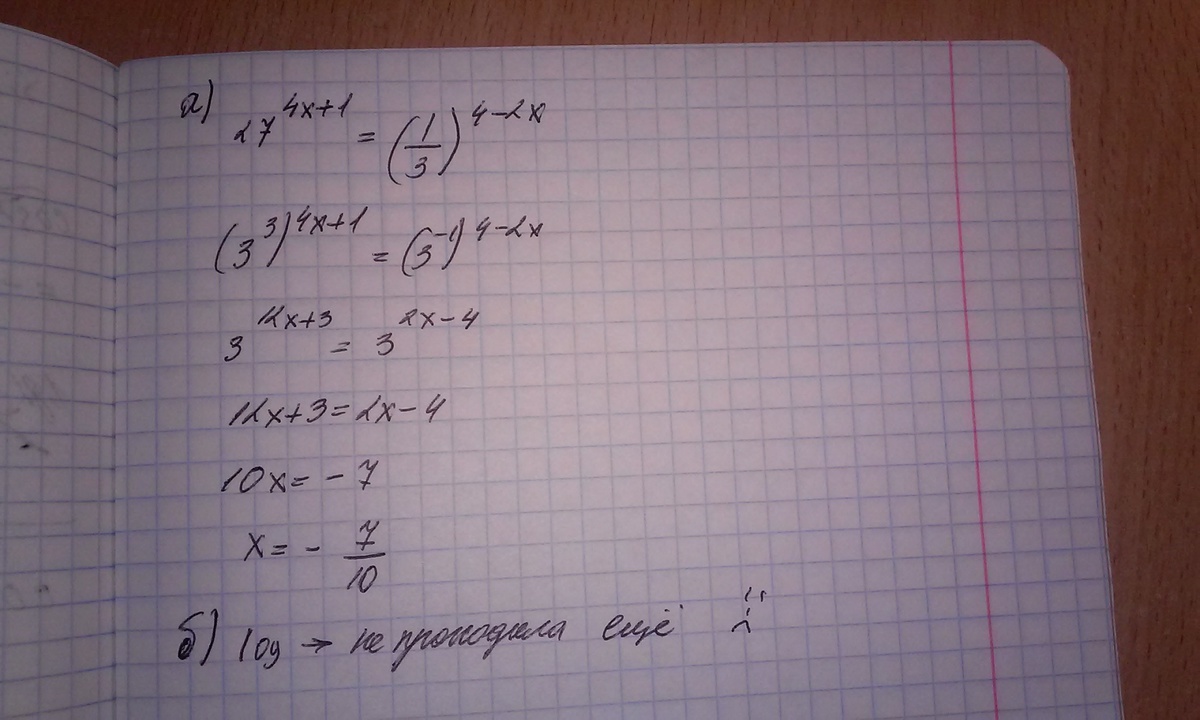 а) 27^(4x+1) = (1/3)^(4-2x)
(3^3)^(4x+1) = (3^-1)^(4-2x)
3^(12x+3) = 3^(2x-4)
12x+3=2x-4
10x= -7
x= - 7/10
б) log → не проходила ещё